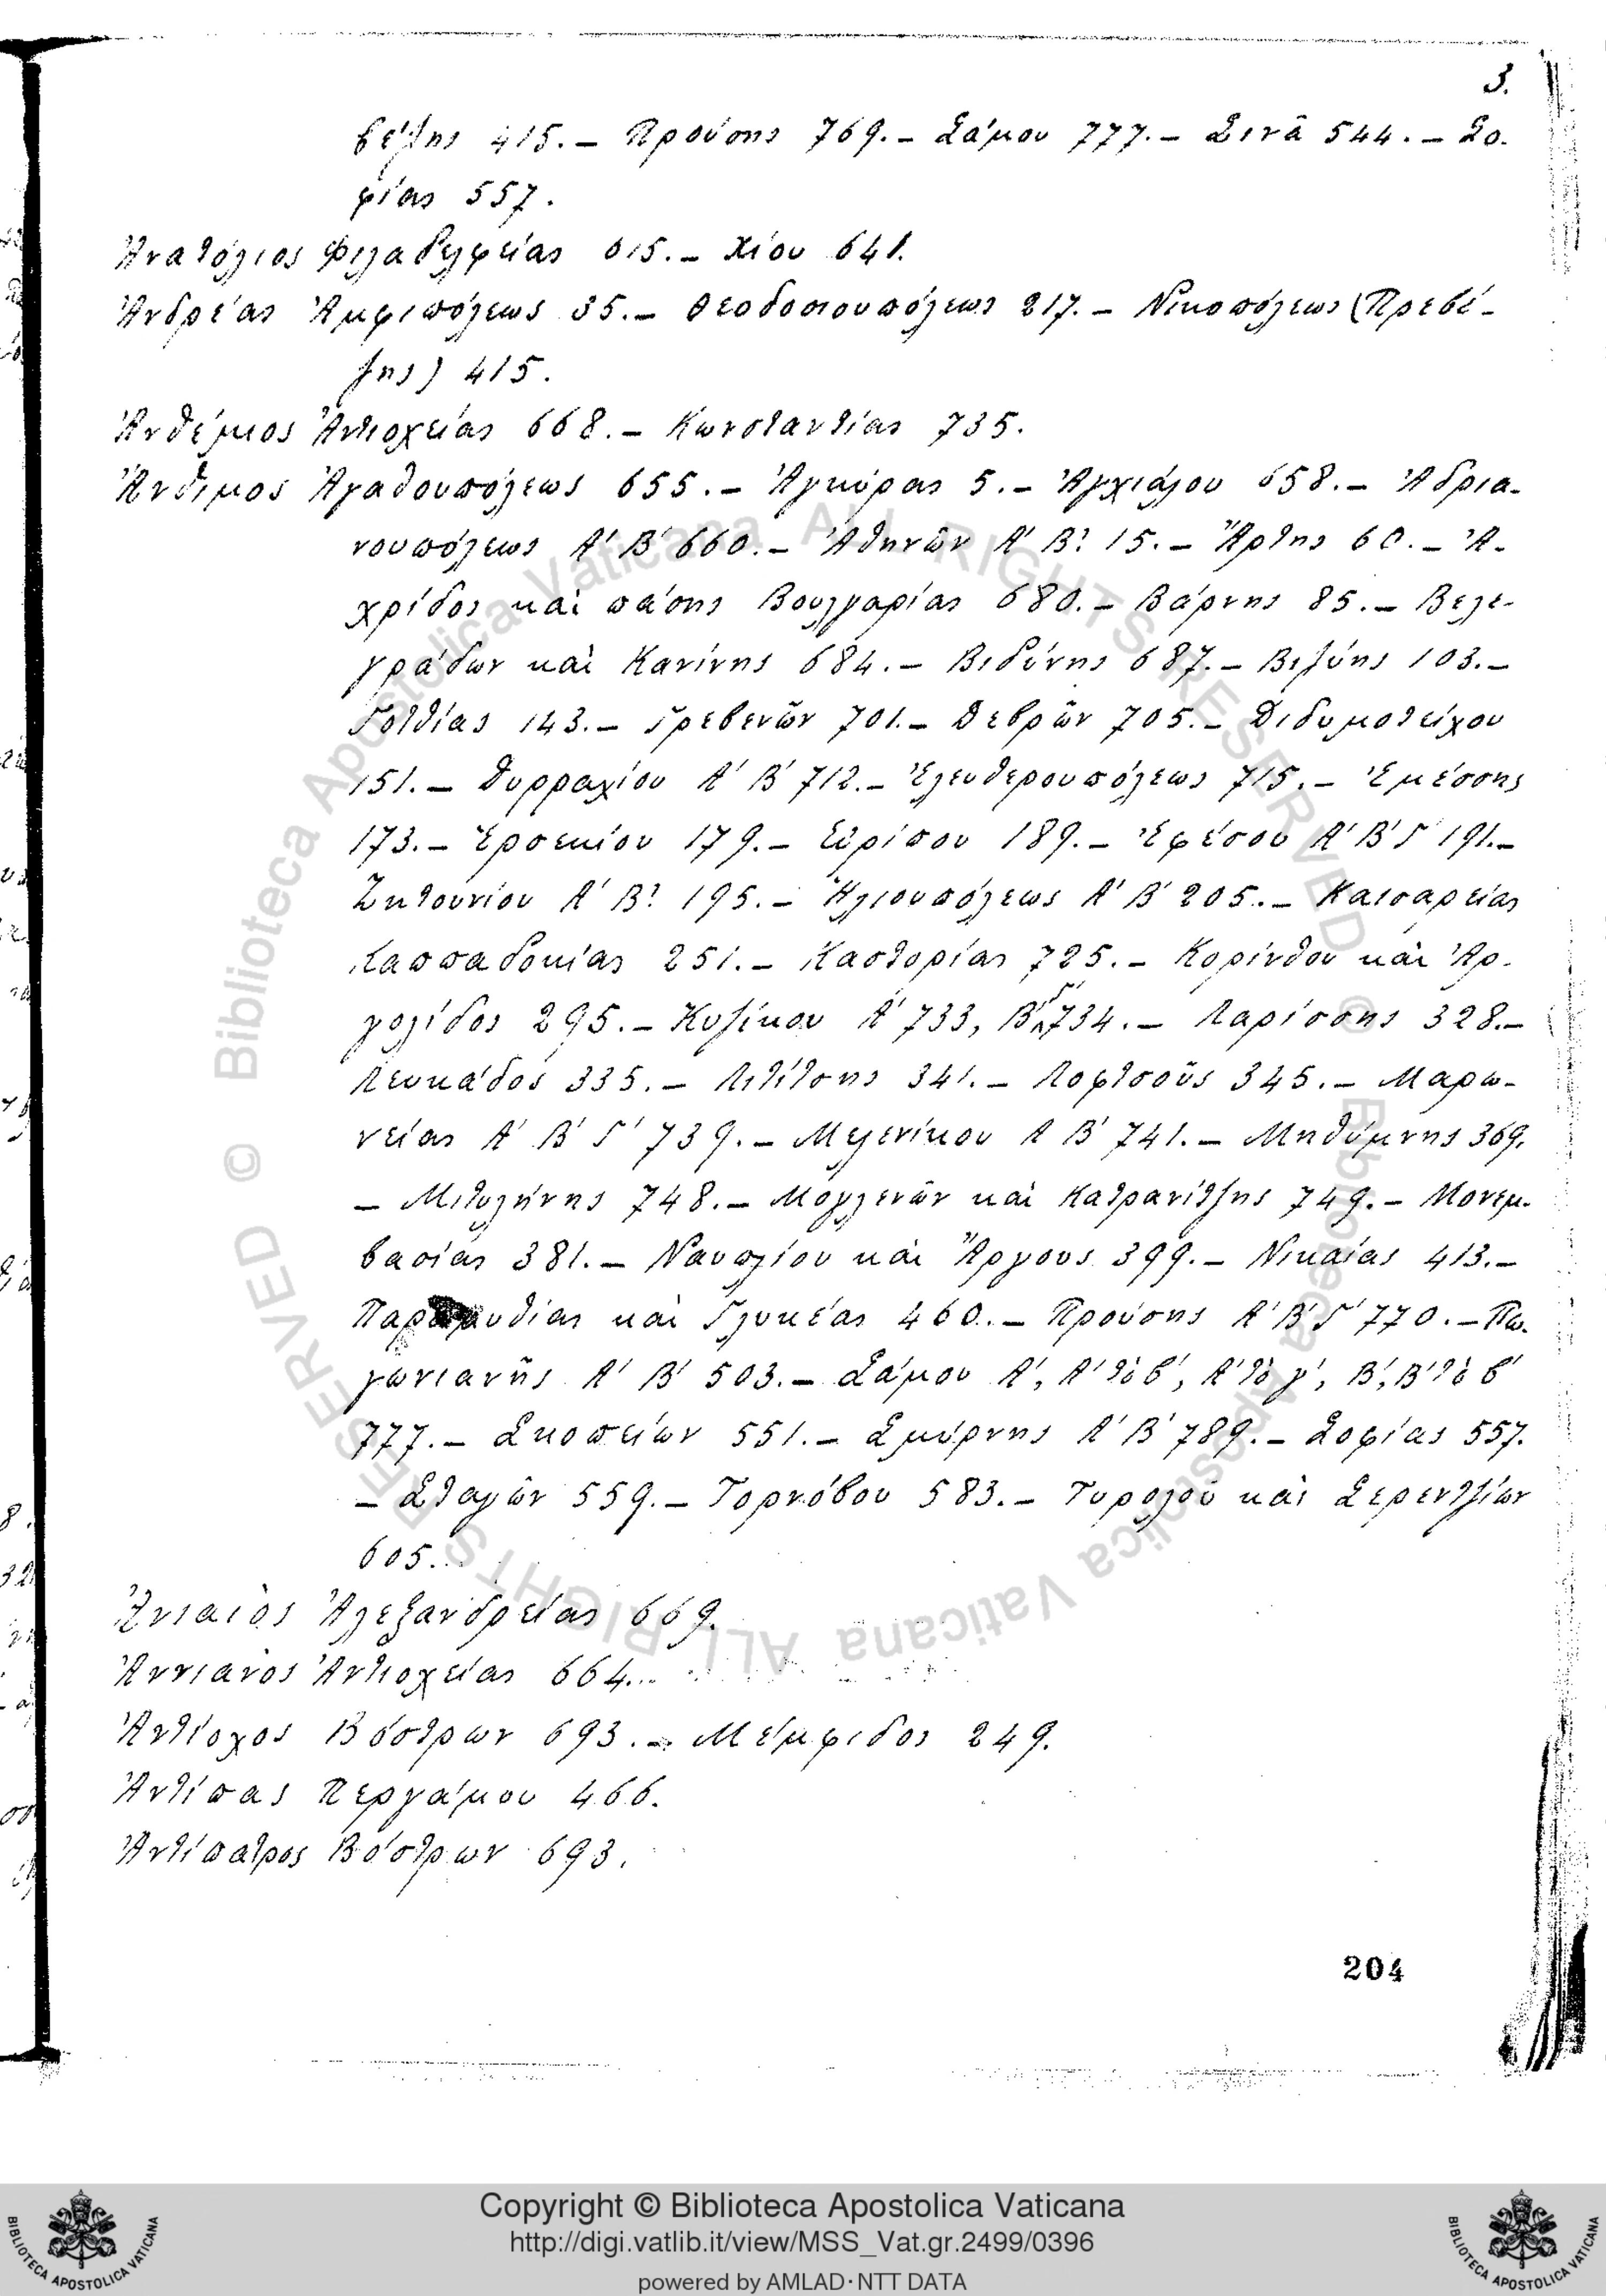 3.
βέζης 415. – Προύσης 769. – Σάμου 777. – Σινᾶ 544. – Σο-
φίας 557.
Ἀνατόλιος Φιλαδελφείας 615. – Χίου 641.
Ἀνδρέας Ἀμφιπόλεως 35. – Θεοδοσιουπόλεως 217. – Νικοπόλεως (Πρεβέ-
ζης) 415.
Ἀνθέμιος Ἀντιοχείας 668. – Κωνσταντίας 735.
Ἄνθιμος Ἀγαθουπόλεως 655. – Ἀγκύρας 5. – Ἀγχιάλου 658. – Ἀδρια-
νουπόλεως Α΄ Β΄ 660. – Ἀθηνῶν Α΄ Β΄. 15. – Ἄρτης 60. – Ἀ-
χρίδος καὶ πάσης Βουλγαρίας 680. – Βάρνης 85. – Βελε-
γράδων καὶ Κανίνης 684. – Βιδύνης 687. – Βιζύης 103. –
Γοτθίας 143. – Γρεβενῶν 701. – Δεβρῶν 705. – Διδυμοτείχου
151. – Δυρραχίου Α΄ Β΄ 712. – Ἐλευθερουπόλεως 715. – Ἐμέσσης
173. – Ἐρσεκίου 179. – Εὐρίπου 189. – Ἐφέσου Α΄ Β΄ Γ΄ 191. –
Ζητουνίου Α΄ Β΄. 195. – Ἡλιουπόλεως Α΄ Β΄ 205. – Καισαρείας
Καππαδοκίας 251. – Καστορίας 725. – Κορίνθου καὶ Ἀρ-
γολίδος 295. – Κυζίκου Α΄ 733, Β΄ Γ΄ 734. – Λαρίσσης 328. –
Λευκάδος 335. – Λιτίτσης 341. – Λοφτσοῦς 345. – Μαρω-
νείας Α΄ Β΄ Γ΄ 739. – Μελενίκου Α Β΄ 741. – Μηθύμνης 369.
– Μιτυλήνης 748. – Μογλενῶν καὶ Κατρανίτζης 749. – Μονεμ-
βασίας 381. – Ναυπλίου καὶ Ἄργους 399. – Νικαίας 413. –
Παραμυθίας καὶ Γλυκέας 460. – Προύσης Α΄ Β΄ Γ΄ 770. – Πω-
γωνιανῆς Α΄ Β΄ 503. – Σάμου Α΄, Α΄ τὸ β΄, Α΄ τὸ γ΄, Β΄, Β΄ τὸ β΄
777. – Σκοπείων 551. – Σμύρνης Α΄ Β΄ 789. – Σοφίας 557.
– Σταγῶν 559. – Τορνόβου 583. – Τυρολόῦ καὶ Σερεντζίων
605.
Ἀνιανὸς Ἀλεξανδρείας 669.
Ἀννιανὸς Ἀντιοχείας 664.
Ἀντίοχος Βόστρων 693. – Μέμφιδος 249.
Ἀντίπας Περγάμου 466.
Ἀντίπατρος Βόστρων 693.
204
© Biblioteca Apostolica Vaticana ALL RIGHTS RESERVED © Biblioteca Apostolica Vaticana ALL RIGHTS RESERVED
Copyright © Biblioteca Apostolica Vaticana
http://digi.vatlib.it/view/MSS_Vat.gr.2499/0396
powered by AMLAD·NTT DATA
BIBLIOTECA APOSTOLICA VATICANA
BIBLIOTECA APOSTOLICA VATICANA